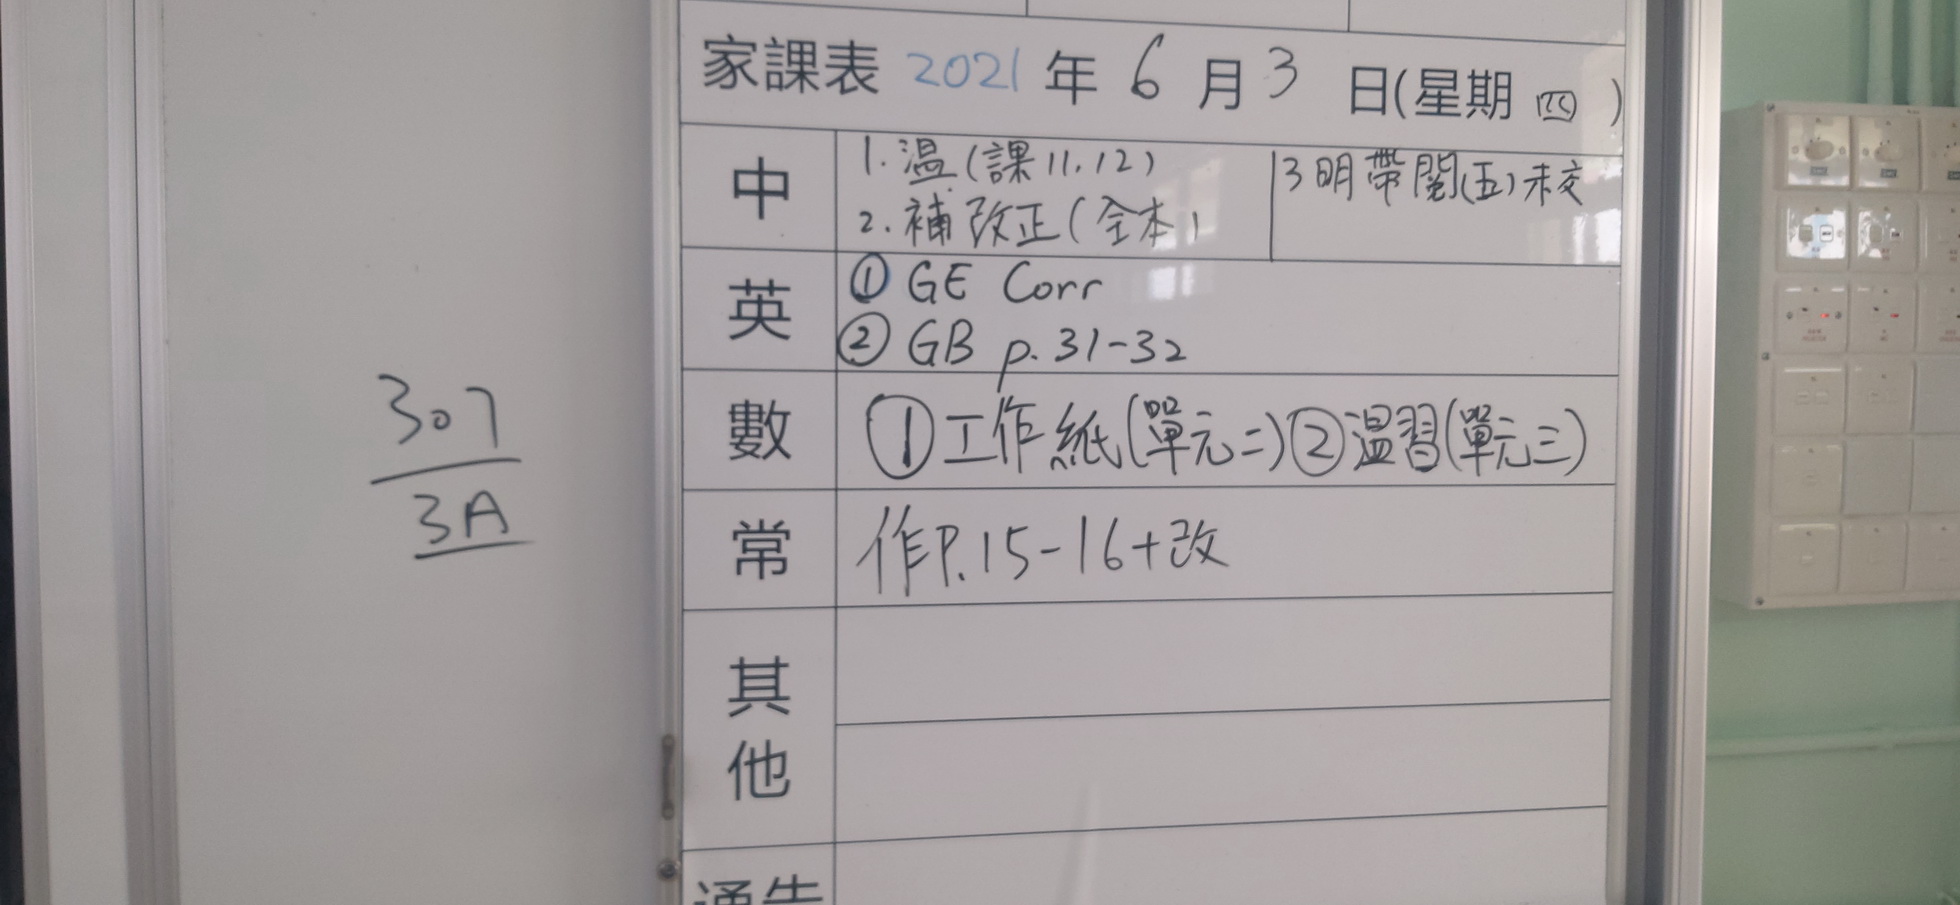 家課表 2021 年 6 月 3 日(星期 四 )
中
1. 溫(課11.12)
2. 補改正(全本)
3 明帶閱(五)未交
英
① GE Corr
② GB p. 31-32
數
①工作紙(單元二)②溫習(單元三)
常
作P.15-16+改
其他
通告
307
3A